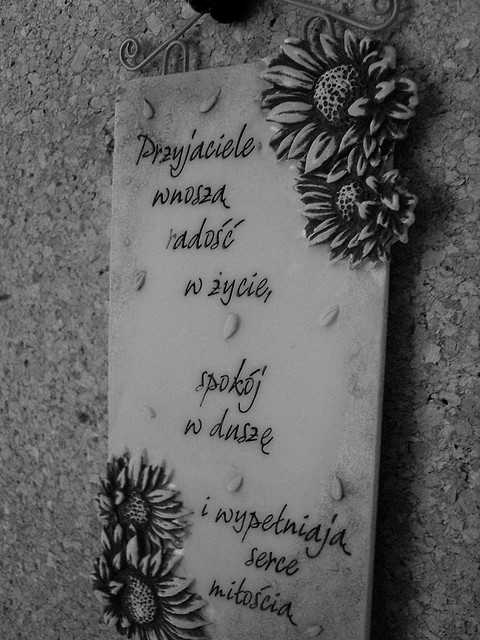 Przyjaciele
wnoszą
radość
w życie,
spokój
w duszę
i wypełniają
serce
miłością